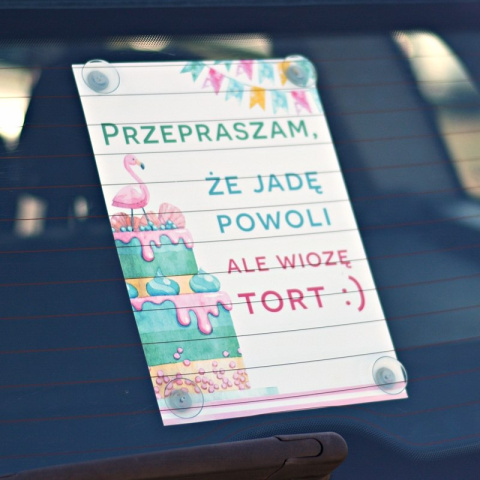 PRZEPRASZAM,
ŻE JADĘ
POWOLI
ALE WIOZĘ
TORT :)